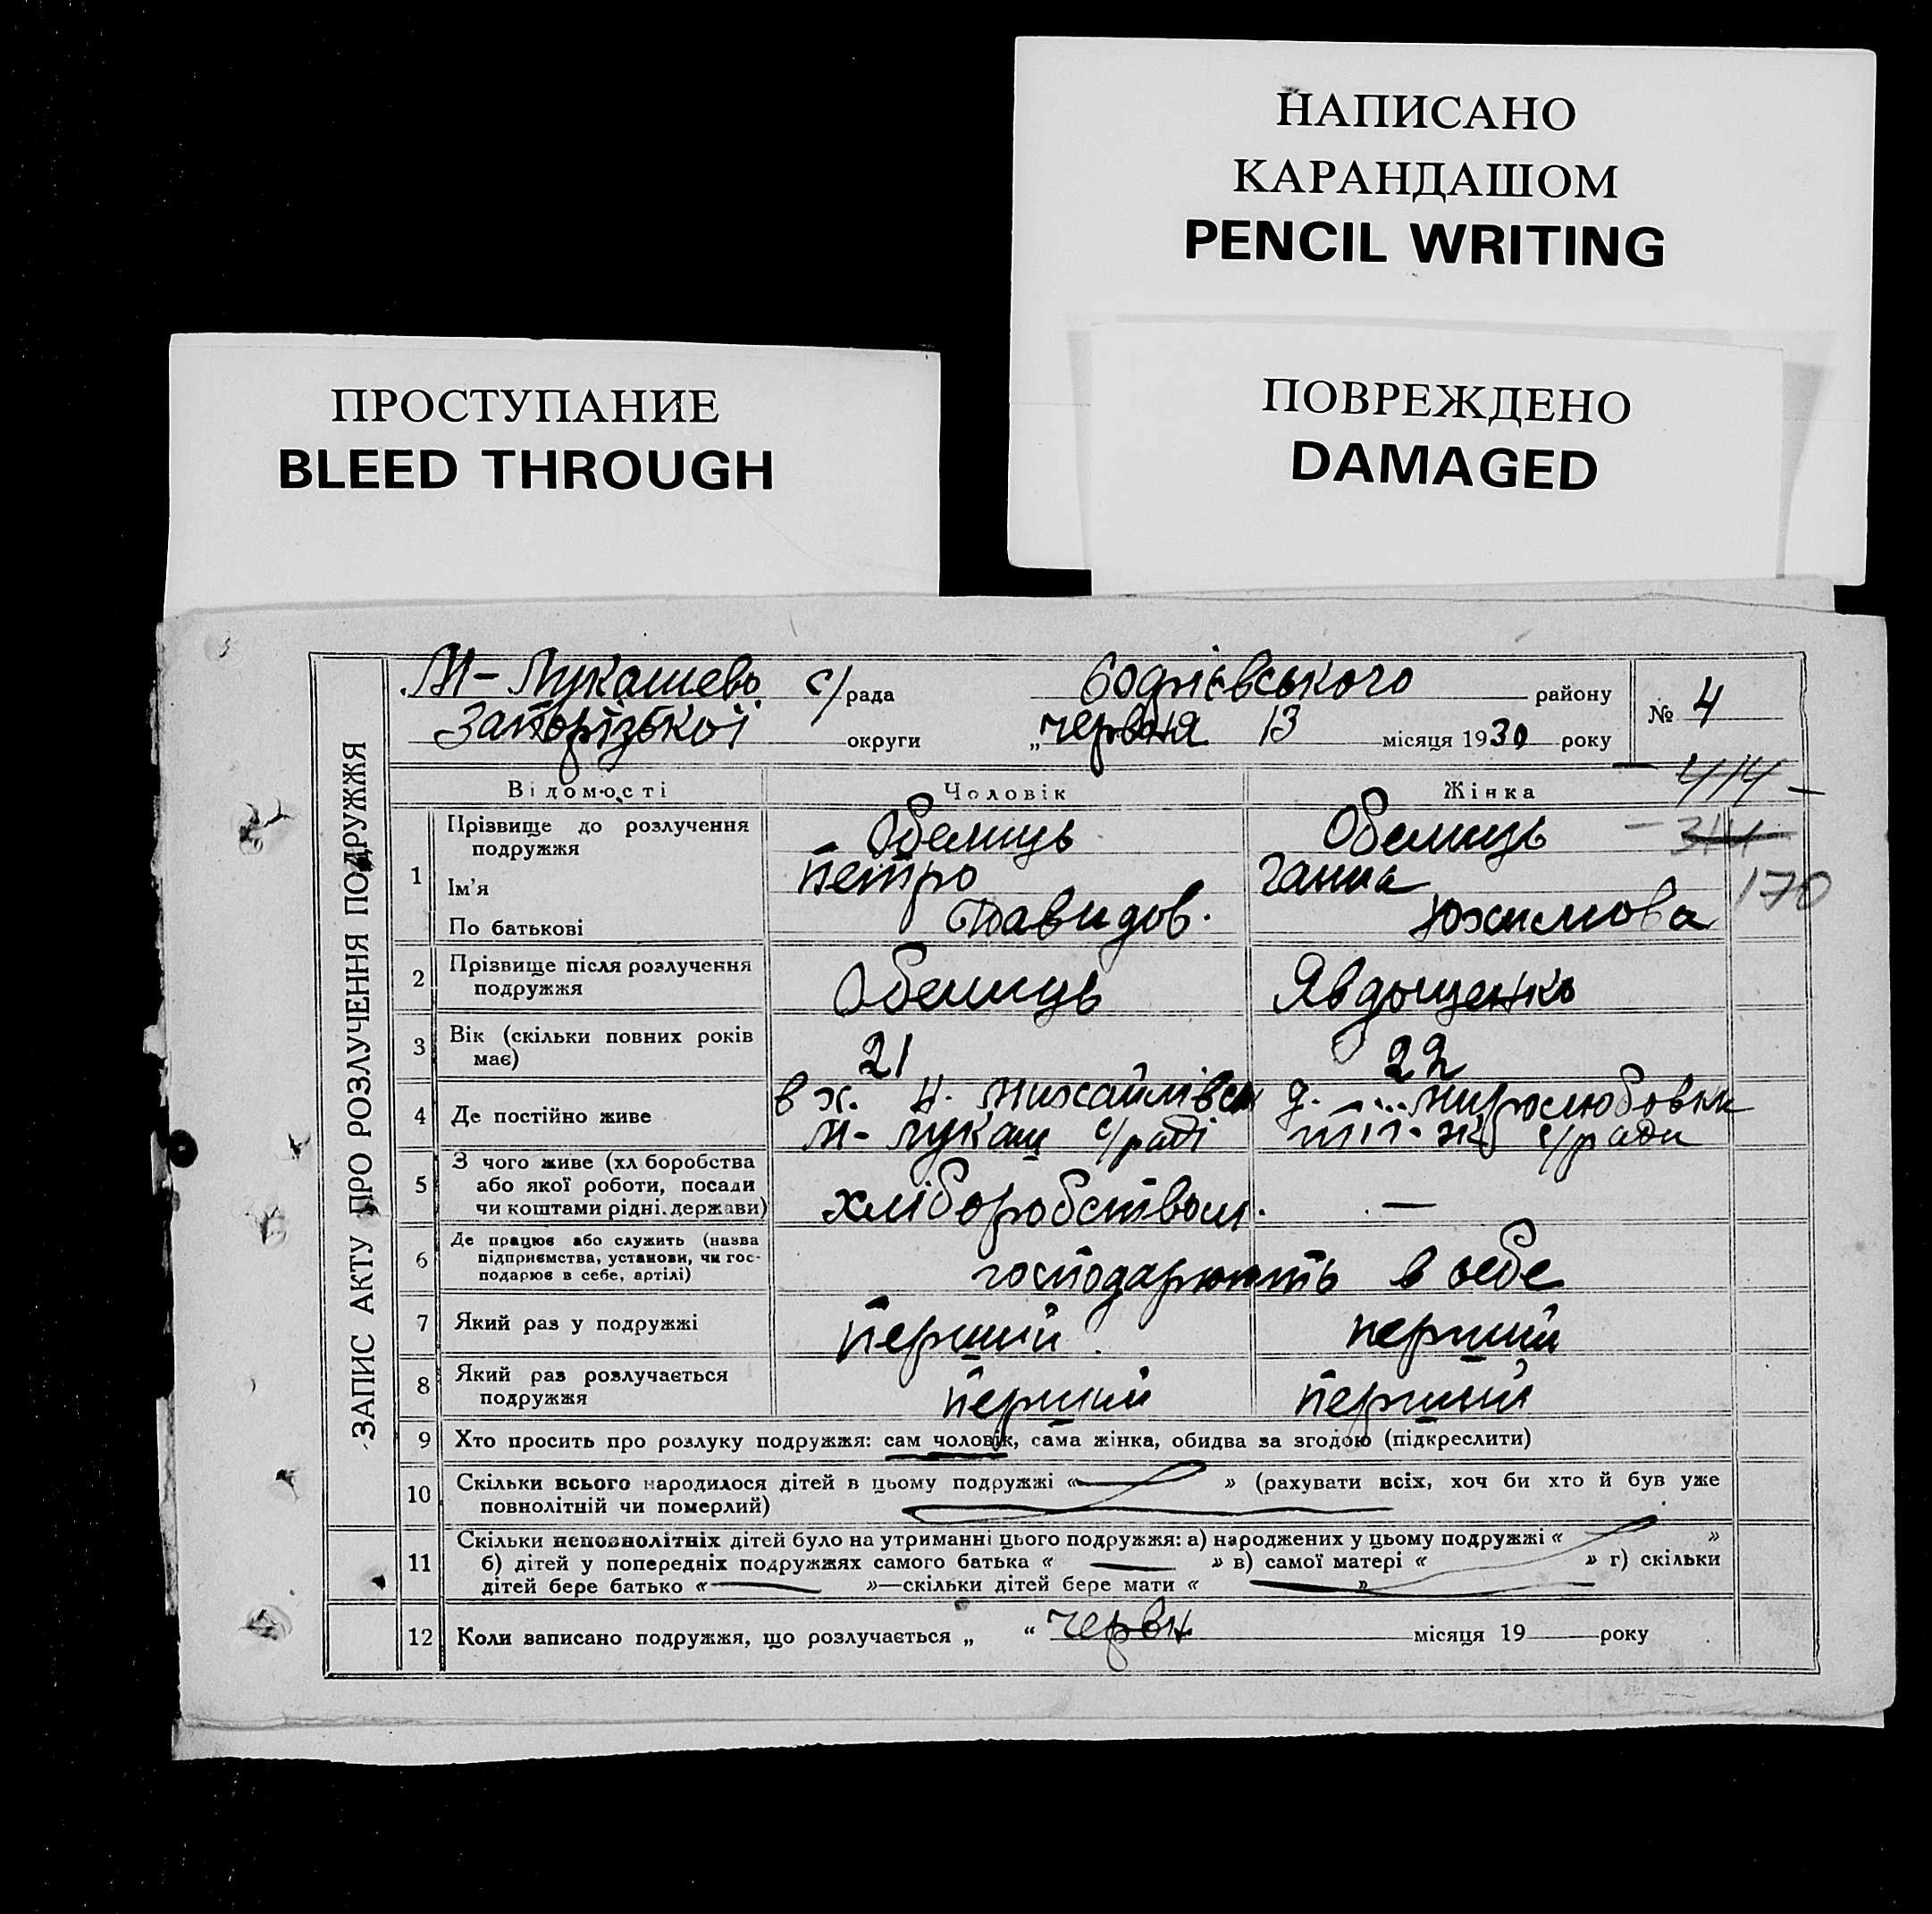 НАПИСАНО
КАРАНДАШОМ
PENCIL WRITING
ПРОСТУПАНИЕ
BLEED THROUGH
ПОВРЕЖДЕНО
DAMAGED
ЗАПИС АКТУ ПРО РОЗЛУЧЕННЯ ПОДРУЖЖЯ
М-Лукашево с/рада Софіївського району
№ 4
Запорізької округи „червня 13 місяця 1930 року
414
Відомості Чоловік Жінка
1 Прізвище до розлучення подружжя Обелиць Обелиць
314
Ім’я Петро Ганна
170
По батькові Давидов. Юхимова
2 Прізвище після розлучення
подружжя Обелиць Явдощенко
3 Вік (скільки повних років
має) 21 22
4 Де постійно живе
в х. Н. Михайлівка
М-Лукаш с/раді
Миролюбовки
с/ради
5 З чого живе (хліборобства
або якої роботи, посади
чи коштами рідні. держави) хліборобством. —
6 Де працює або служить (назва
підприємства, установи, чи гос-
подарює в себе, артілі) господарюють в себе
7 Який раз у подружжі перший перший
8 Який раз розлучається
подружжя перший перший
9 Хто просить про розлуку подружжя: сам чоловік, сама жінка, обидва за згодою (підкреслити)
10 Скільки всього народилося дітей в цьому подружжі «—» (рахувати всіх, хоч би хто й був уже
повнолітній чи померлий)
11 Скільки неповнолітніх дітей було на утриманні цього подружжя: а) народжених у цьому подружжі « »
б) дітей у попередніх подружжях самого батька « — » в) самої матері « » г) скільки
дітей бере батько «— »—скільки дітей бере мати « — »
12 Коли записано подружжя, що розлучається „ “ червн місяця 19 року